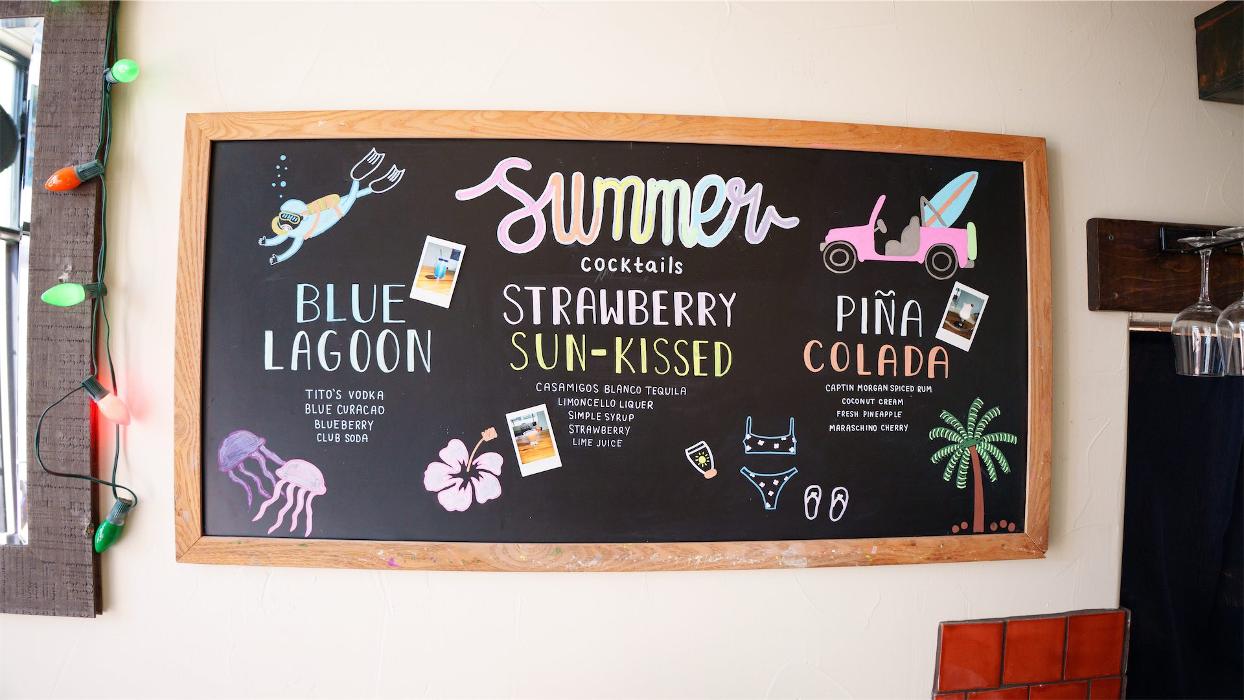 Summer
cocktails
BLUE
LAGOON
TITO'S VODKA
BLUE CURACAO
BLUEBERRY
CLUB SODA
STRAWBERRY
SUN-KISSED
CASAMIGOS BLANCO TEQUILA
LIMONCELLO LIQUER
SIMPLE SYRUP
STRAWBERRY
LIME JUICE
PIÑA
COLADA
CAPTIN MORGAN SPICED RUM
COCONUT CREAM
FRESH PINEAPPLE
MARASCHINO CHERRY